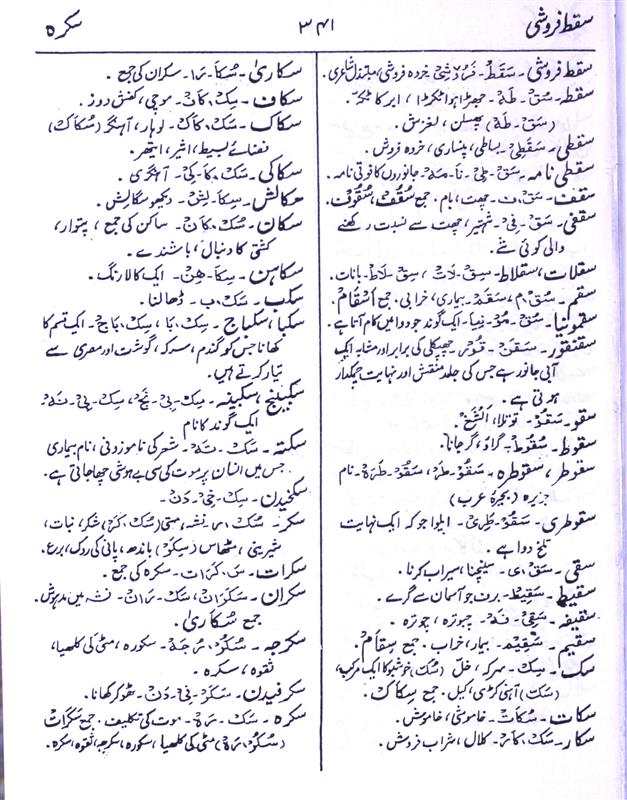 سقط فروشی
۳۴۱
سکرہ
سقط فروشی۔ سَقَط۔ فَرُوْشِیْ۔ خردہ فروشی، مبتذل شاعری۔
سقط۔ سُقْ۔ طَہْ۔ جھڑا ہوا ٹکڑا، ابر کا ٹکڑ۔
(سَقْ۔ طَہْ) پھسلن، لغزش۔
سقطی۔ سَقَطِیْ۔ بساطی، پنساری، خردہ فروش۔
سقطی نامہ۔ سَقْ۔ طِیْ۔ نَا۔ مَہْ۔ جانوروں کا فوتی نامہ۔
سقف۔ سَقْ۔ ف۔ چھت، بام۔ جمع سُقُفْ، سُقُوْفْ۔
سقفی۔ سَقْ۔ فِیْ۔ شہتیر، چھت سے نسبت رکھنے
والی کوئی شے۔
سقلات، سقلاط۔ سِقْ۔ لَاتْ، سِقْ۔ لَاطْ۔ بانات۔
سقم۔ سُقْ۔ م، سَقَمْ۔ بیماری، خرابی۔ جمع اَسْقَام۔
سقمونیا۔ سَقْ۔ مُوْ۔ نِیَا۔ ایک گوند جو دوا میں کام آتا ہے۔
سقنقور۔ سَقَنْ۔ قُوْر۔ چھپکلی کی برابر اور مشابہ ایک
آبی جانور ہے جس کی جلد منقش اور نہایت چمکدار
ہوتی ہے۔
سقو۔ سَقُوْ۔ توتلا، اَلْشَغْ۔
سقوط۔ سُقُوْط۔ گراؤ، گر جانا۔
سقوطر، سقوطرہ۔ سَقُوْ۔ طَرْ، سَقُوْ۔ طَرَہْ۔ نام
جزیرہ (بحیرۂ عرب)
سقوطری۔ سَقُوْ۔ طَرِیْ۔ ایلوا جو کہ ایک نہایت
تلخ دوا ہے۔
سقی۔ سَقْ، ی۔ سینچنا، سیراب کرنا۔
سقیط۔ سَقِیْط۔ برف جو آسمان سے گرے۔
سقیفہ۔ سَقِیْ۔ فَہْ۔ چبوترہ، چوترہ۔
سقیم۔ سَقِیْم۔ بیمار، خراب۔ جمع سِقَامْ۔
سک۔ سِکْ۔ سرکہ، خلّ (سُک) خوشبو کا ایک مرکب،
(سَک) آہنی کڑی، کیل۔ جمع سِکَاک۔
سکات۔ سُکَاتْ۔ خاموشی، خاموش۔
سکار۔ سَکْ، کَارْ۔ کلال، شراب فروش۔
سکاریٰ۔ سُکَا۔ رَا۔ سکران کی جمع۔
سکاف۔ سِکْ، کَافْ۔ موچی، کفش دوز۔
سکاک۔ سَکْ، کَاکْ۔ لوہار، آہنگر (سُکَاکْ)
فضائے بسیط، اثیر، ایتھر۔
سکاکی۔ سَکْ، کَا۔ کِیْ۔ آہنگری۔
سکالش۔ سِکَا۔ لِشْ۔ دیکھو سگالش۔
سکان۔ سُکْ، کَانْ۔ ساکن کی جمع، پتوار،
کشتی کا دنبال، باشندے۔
سکاہن۔ سِکَا۔ ھِنْ۔ ایک کالا رنگ۔
سکب۔ سَکْ، ب۔ ڈھالنا۔
سکبا، سکباج۔ سِکْ، بَا، سِکْ، بَاج۔ ایک قسم کا
کھانا جس کو گندم، سرکہ، گوشت اور مصری سے
تیار کرتے ہیں۔
سکبینج، سکبینہ۔ سِکْ۔ بِیْ۔ نَجْ، سِکْ۔ بِیْ۔ نَہْ۔
ایک گوند کا نام
سکتہ۔ سَکْ۔ تَہْ۔ شعر کی ناموزونی، نام بیماری
جس میں انسان پر موت کی سی بے ہوشی چھا جاتی ہے۔
سکخیدن۔ سِکْ۔ خِیْ۔ دَنْ۔
سکر۔ سُکْ، ر۔ نشہ، مستی (سُکْ، کَر) شکر، نبات،
شیرینی، مٹھاس (سِکْر) باندھ، پانی کی روک، برع۔
سکرات۔ سَ، کَرَات۔ سکرہ کی جمع۔
سکران۔ سَکَرَانْ، سَکْ۔ رَانْ۔ نشہ میں مدہوش۔
جمع سُکَارٰی۔
سکرجہ۔ سُکُرْ، رُجَہْ۔ سکورہ، مٹی کی کلھیا،
ثقوہ، سکرہ۔
سکرفیدن۔ سَکَرْ۔ فِیْ۔ دَنْ۔ ٹھوکر کھانا۔
سکرہ۔ سَکْ۔ رَہْ۔ موت کی تکلیف۔ جمع سَکَرَات
(سُکُوْ، رَہْ) مٹی کی کلھیا، سکورہ، سکرجہ، ثقوہ، سکرہ۔